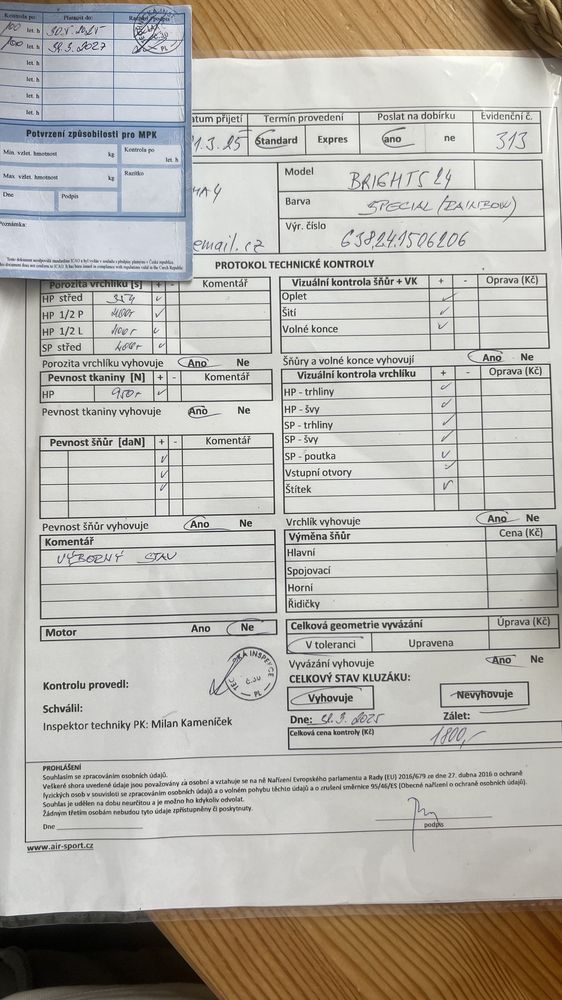 Kontrola po Platnost do: Razítko / podpis
100 let. h
100 let. h
let. h
let. h
let. h
let. h
Potvrzení způsobilosti pro MPK
Min. vzlet. hmotnost kg
Kontrola po
let. h
Max vzlet. hmotnost kg
Razítko
Dne Podpis
Poznámka:
Tento dokument neodpovídá standardům ICAO a byl vydán v souladu s předpisy platnými v České republice.
This document does not conform to ICAO. It has been issued in compliance with regulations valid in the Czech Republic
atum přijetí Termín provedení Poslat na dobírku Evidenční č.
1.3.25 Standard Expres ano ne 313
Model BRIGHT5 24
Barva SPECIAL (RAINBOW)
Výr. číslo
email.cz
PROTOKOL TECHNICKÉ KONTROLY
Porozita vrchlíku [s] + - Komentář
HP střed
HP 1/2 P 400+
HP 1/2 L 400+
SP střed 400+
Porozita vrchlíku vyhovuje Ano Ne
Pevnost tkaniny [N] + - Komentář
HP 950+
Pevnost tkaniny vyhovuje Ano Ne
Pevnost šňůr [daN] + - Komentář
Pevnost šňůr vyhovuje Ano Ne
Komentář
VÝBORNÝ STAV
Motor Ano Ne
Kontrolu provedl:
Schválil:
Inspektor techniky PK: Milan Kameníček
Vizuální kontrola šňůr + VK + - Oprava (Kč)
Oplet
Šití
Volné konce
Šňůry a volné konce vyhovují Ano Ne
Vizuální kontrola vrchlíku + - Oprava (Kč)
HP - trhliny
HP - švy
SP - trhliny
SP - švy
SP - poutka
Vstupní otvory
Štítek
Vrchlík vyhovuje Ano Ne
Výměna šňůr Cena (Kč)
Hlavní
Spojovací
Horní
Řidičky
Celková geometrie vyvázání Úprava (Kč)
V toleranci Upravena
Vyvázání vyhovuje Ano Ne
CELKOVÝ STAV KLUZÁKU:
Vyhovuje Nevyhovuje
Dne: Zálet:
Celková cena kontroly (Kč) 1800,-
PROHLÁŠENÍ
Souhlasím se zpracováním osobních údajů.
Veškeré shora uvedené údaje jsou považovány za osobní a vztahuje se na ně Nařízení Evropského parlamentu a Rady (EU) 2016/679 ze dne 27. dubna 2016 o ochraně
fyzických osob v souvislosti se zpracováním osobních údajů a o volném pohybu těchto údajů a o zrušení směrnice 95/46/ES (Obecné nařízení o ochraně osobních údajů).
Souhlas je udělen na dobu neurčitou a je možno ho kdykoliv odvolat.
Žádným třetím osobám nebudou tyto údaje zpřístupněny či poskytnuty.
Dne
podpis
www.air-sport.cz